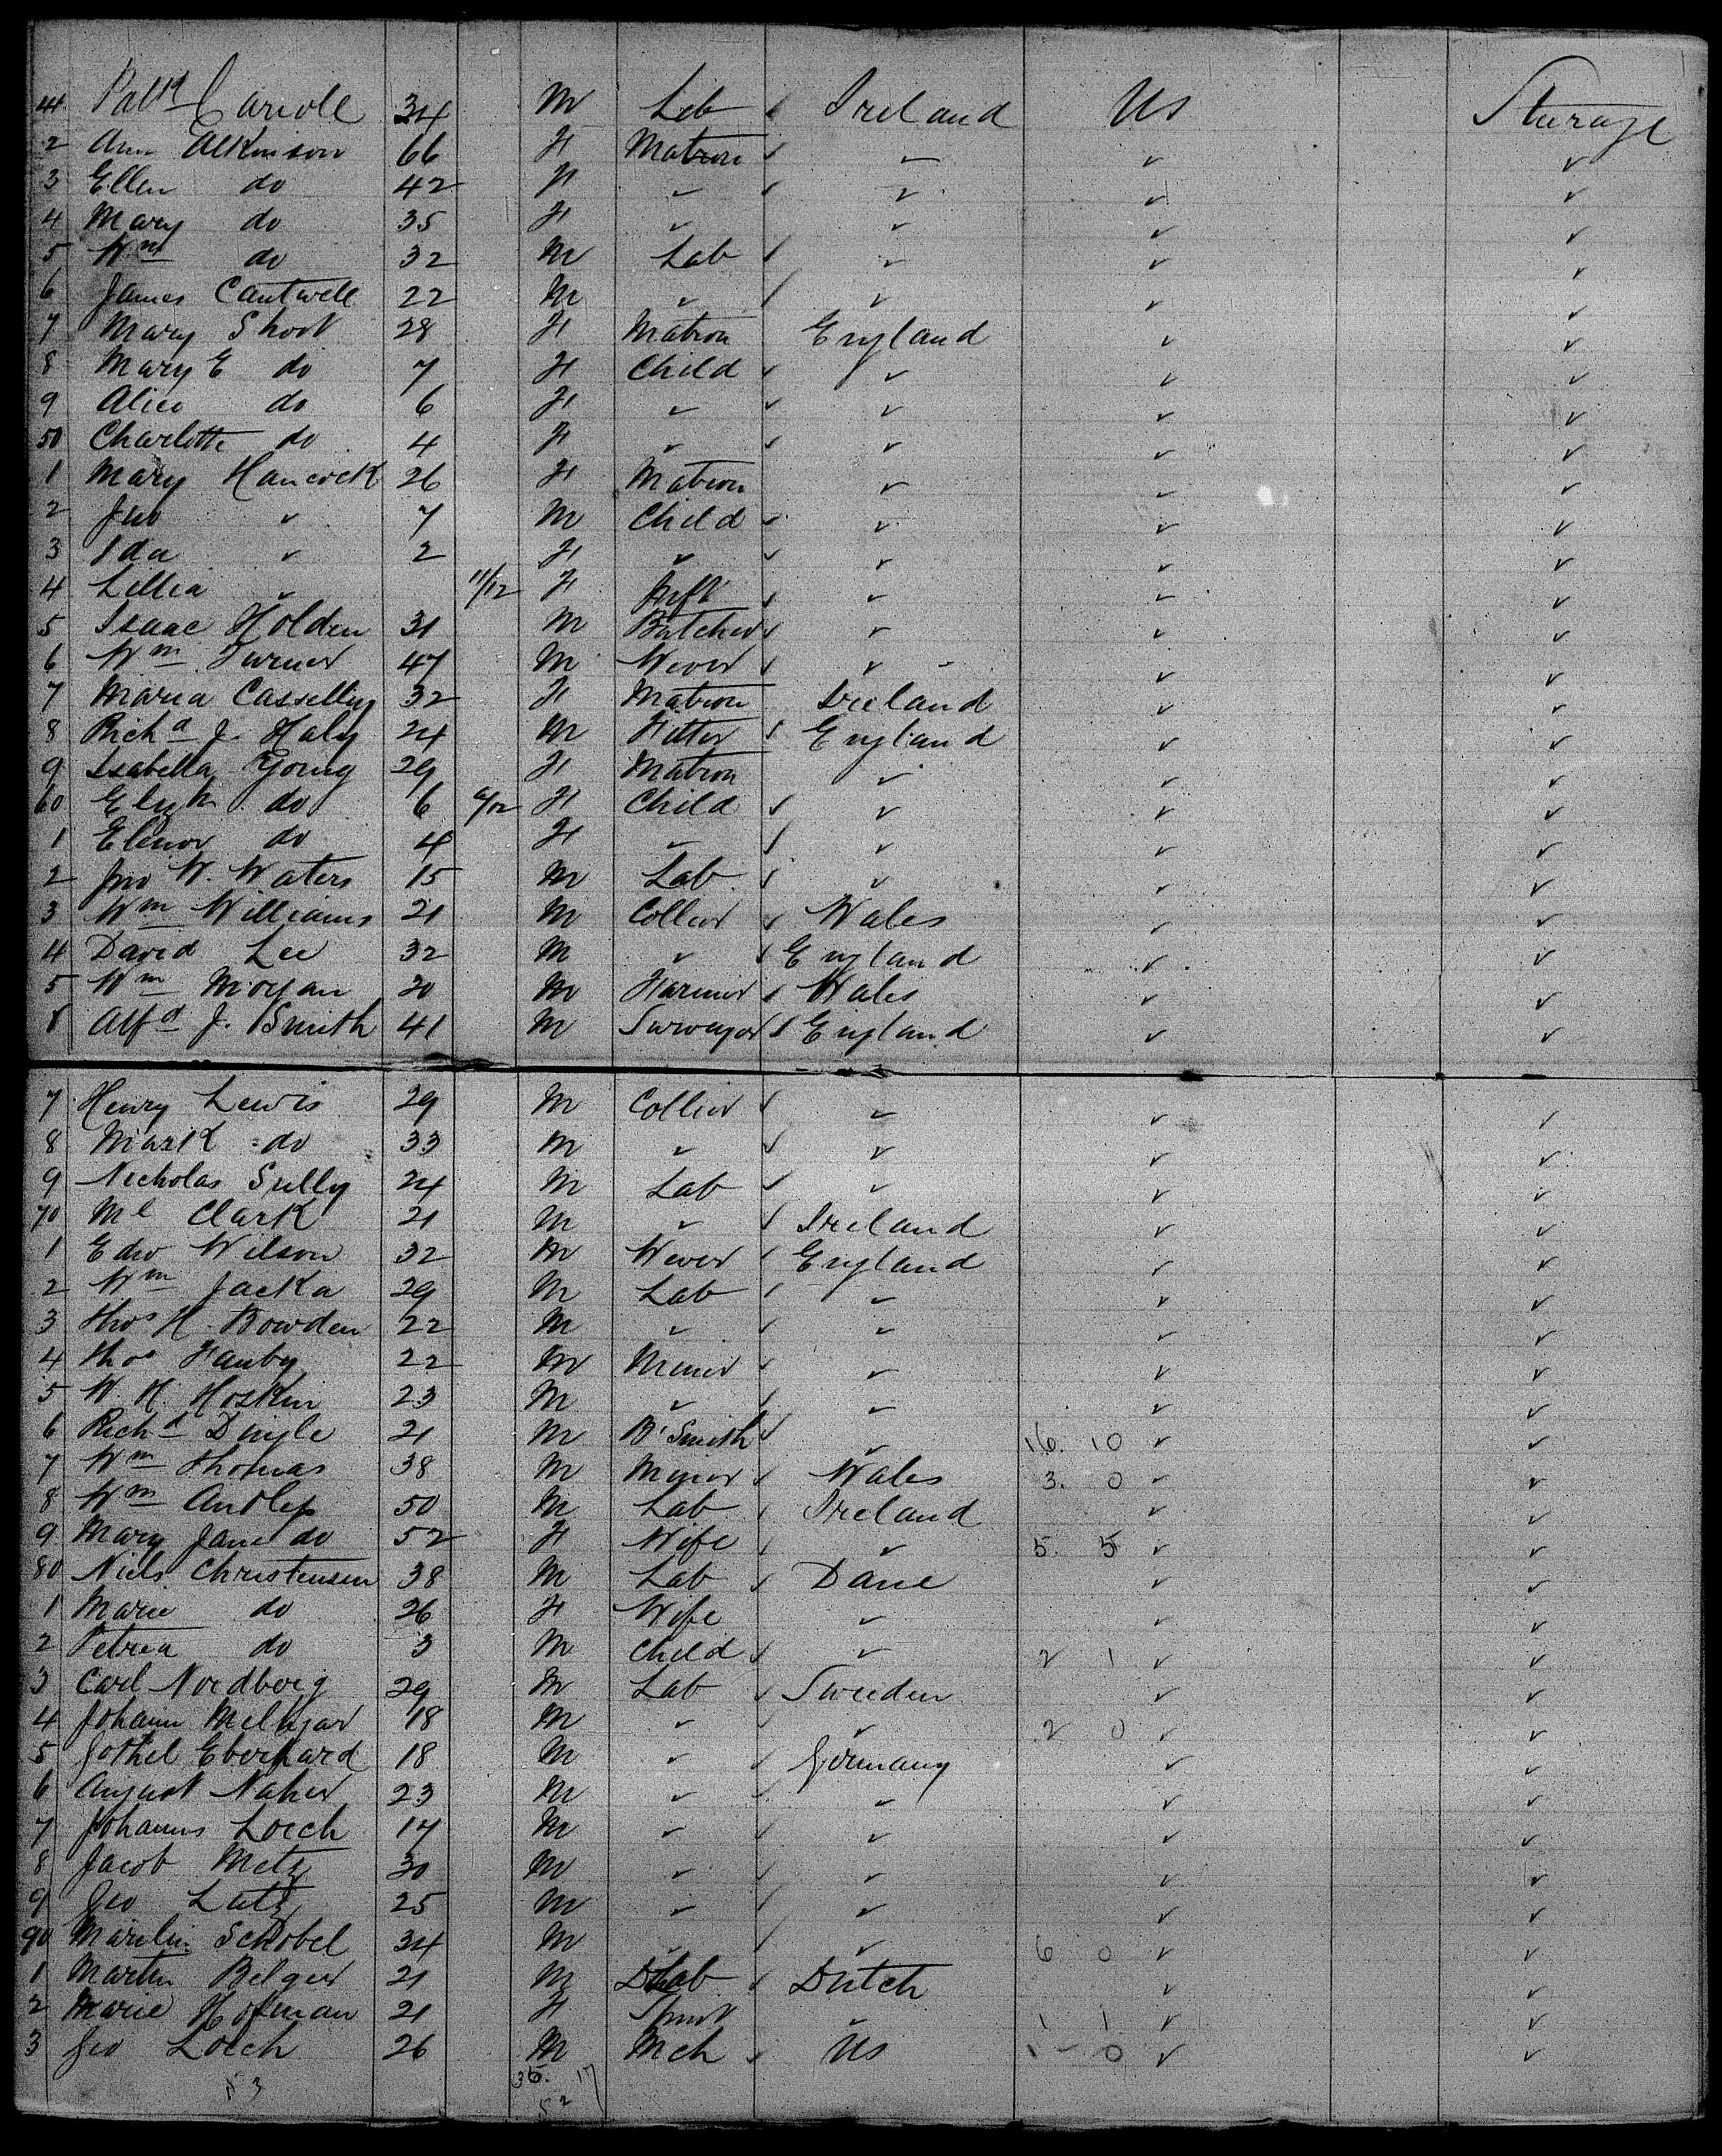 41 Patk Carroll 34 M Lab Ireland Us Steerage
2 Ann Atkinson 66 F Matron " " "
3 Ellen do 42 F " " " "
4 Mary do 35 F " " " "
5 Wm do 32 M Lab " " "
6 James Cantwell 22 M " " " "
7 Mary Short 28 F Matron England " "
8 Mary E do 7 F Child " " "
9 Alice do 6 F " " " "
50 Charlotte do 4 F " " " "
1 Mary Hancock 26 F Matron " " "
2 Jno " 7 M Child " " "
3 Ida " 2 F " " " "
4 Lillia " 11/12 F Inft " " "
5 Isaac Holden 31 M Butcher " " "
6 Wm Turner 47 M Wever " " "
7 Maria Casselley 32 F Matron Ireland " "
8 Richd J. Haly 24 M Fitter England " "
9 Isabella Young 29 F Matron " " "
60 do 6 /12 F Child " " "
1 Elenor do 4 F " " " "
2 Jno W. Waters 15 M Lab " " "
3 Wm Williams 21 M Collier Wales " "
4 David Lee 32 M " England " "
5 Wm Morgan 20 M Farmer Wales " "
Alfd J. Smith 41 M Surveyor England " "
7 Henry Lewis 29 M Collier " " "
8 Mark do 33 M " " " "
9 Nicholas Sully 24 M Lab " " "
70 Ml Clark 21 M " Ireland " "
1 Edw Wilson 32 M Wever England " "
2 Wm Jacka 29 M Lab " " "
3 Thos H. Bowden 22 M " " " "
4 Thos 22 M Miner " " "
5 W. H. Hoskin 23 M " " " "
6 Richd Dingle 21 M B'Smith " 16. 10 " "
7 Wm Thomas 38 M Miner Wales 3. 0 " "
8 Wm 50 M Lab Ireland " "
9 Mary Jane do 52 F Wife " 5. 5 " "
80 Niels Christensen 38 M Lab Dane " "
1 Marie do 26 F Wife " " "
2 Petrea do 3 M Child " 2 1 " "
3 Carl Nordborg 29 M Lab Sweden " "
4 Johann 18 M " " 2 0 " "
5 Eberhard 18 M " Germany " "
6 August Naher 23 M " " " "
7 Johanns Loech 17 M " " " "
8 Jacob Metz 30 M " " " "
9 Geo Latz 25 M " " " "
90 Schobel 34 M " " 6 0 " "
1 Martin Belger 21 M Lab Dutch " "
2 Marie Hofman 21 F Spinst " 1 1 " "
3 Geo Loech 26 M Mch Us 1 - 0 " "
36. 17
53 52